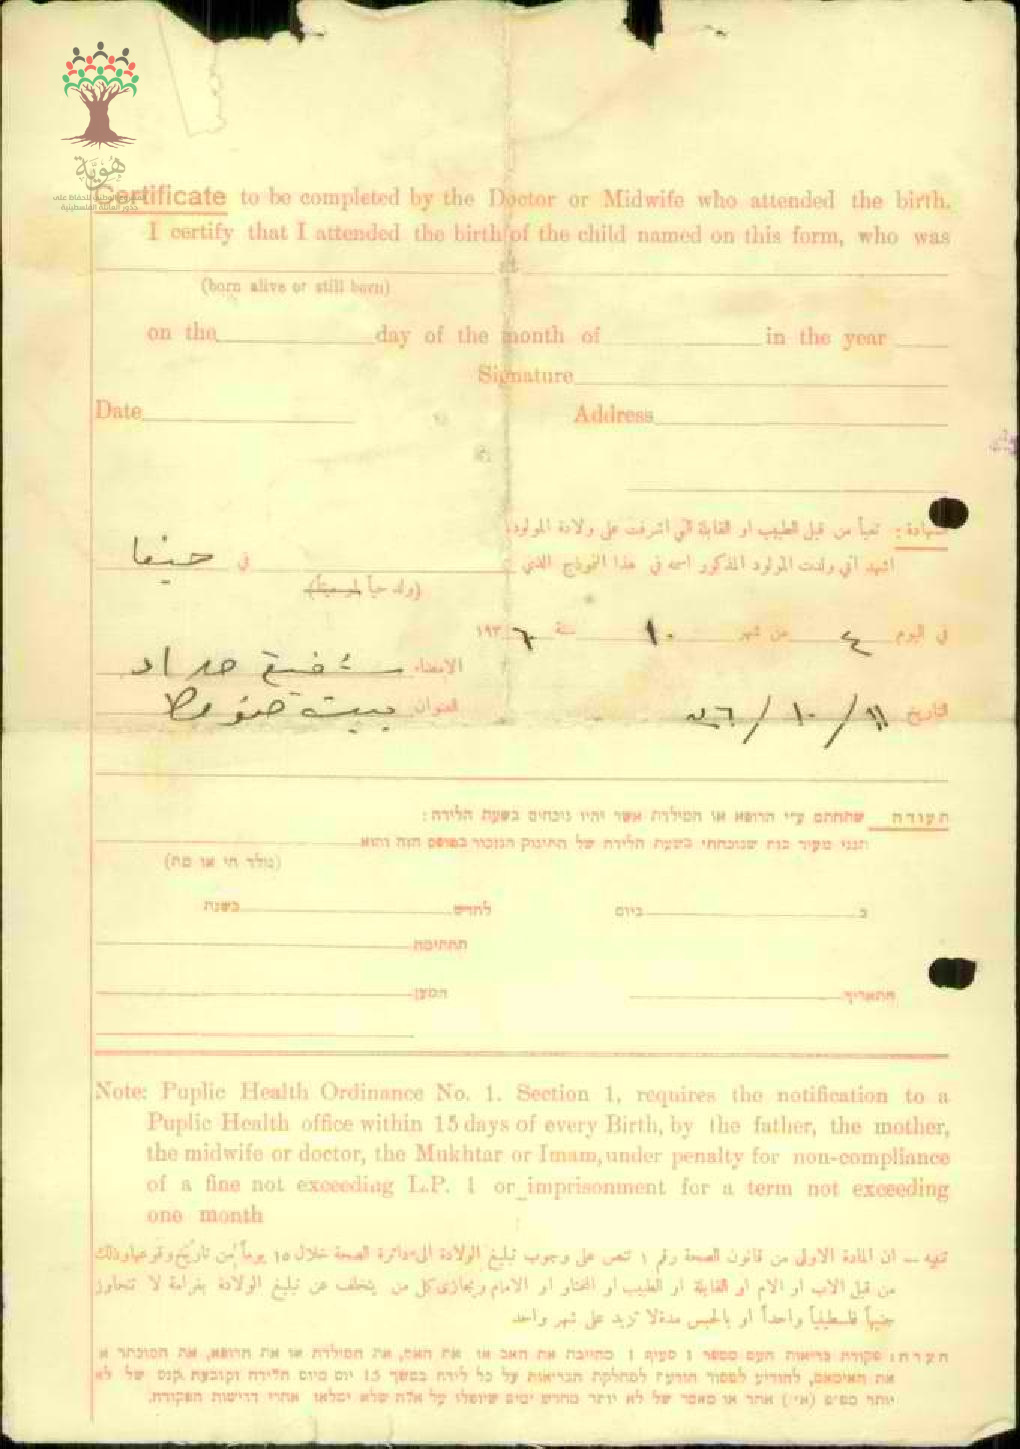 هُوِيَّة
المشروع الوطني للحفاظ على
جذور العائلة الفلسطينية
Certificate to be completed by the Doctor or Midwife who attended the birth.
I certify that I attended the birth of the child named on this form, who was
at
(born alive or still born)
on the day of the month of in the year
Signature
Date Address
شهادة : تعبأ من قبل الطبيب او القابلة التي اشرفت على ولادة المولود.
اشهد اني ولدت المولود المذكور اسمه في هذا النموذج الذي في حيفا
(ولد حياً او ميتاً)
في اليوم ٤ من شهر ١٠ سنة ١٩٣٦
الامضاء شفيق حداد
التاريخ ١١/١٠/٣٦ العنوان بيت
תעודה שתחתם ע״י הרופא או המילדת אשר יהיו נוכחים בשעת הלידה:
הנני מעיד בזה שנוכחתי בשעת הלידה של התינוק הנזכור בטופס הזה והוא
(נולד חי או מת)
ב ביום לחדש בשנת
החתימה
התאריך המען
Note: Puplic Health Ordinance No. 1. Section 1, requires the notification to a
Puplic Health office within 15 days of every Birth, by the father, the mother,
the midwife or doctor, the Mukhtar or Imam, under penalty for non-compliance
of a fine not exceeding L.P. 1 or imprisonment for a term not exceeding
one month
تنبيه — ان المادة الاولى من قانون الصحة رقم ١ تنص على وجوب تبليغ الولادة الى دائرة الصحة خلال ١٥ يوماً من تاريخ وقوعها وذلك
من قبل الاب او الام او القابلة او الطبيب او المختار او الامام ويجازى كل من يتخلف عن تبليغ الولادة بغرامة لا تتجاوز
جنيهاً فلسطينياً واحداً او بالحبس مدة لا تزيد على شهر واحد
הערה: פקודת בריאות העם מספר 1 סעיף 1 מחייבת את האב או את האם, את המילדת או את הרופא, את המוכתר או
את האימאם, להודיע למשרד הודעה למחלקת הבריאות על כל לידה במשך 15 יום מיום הלידה וקובעת קנס של לא
יותר מפ״פ (א״י) אחד או מאסר של לא יותר מחדש ימים שיוטלו על אלה שלא ימלאו אחרי דרישות הפקודה.